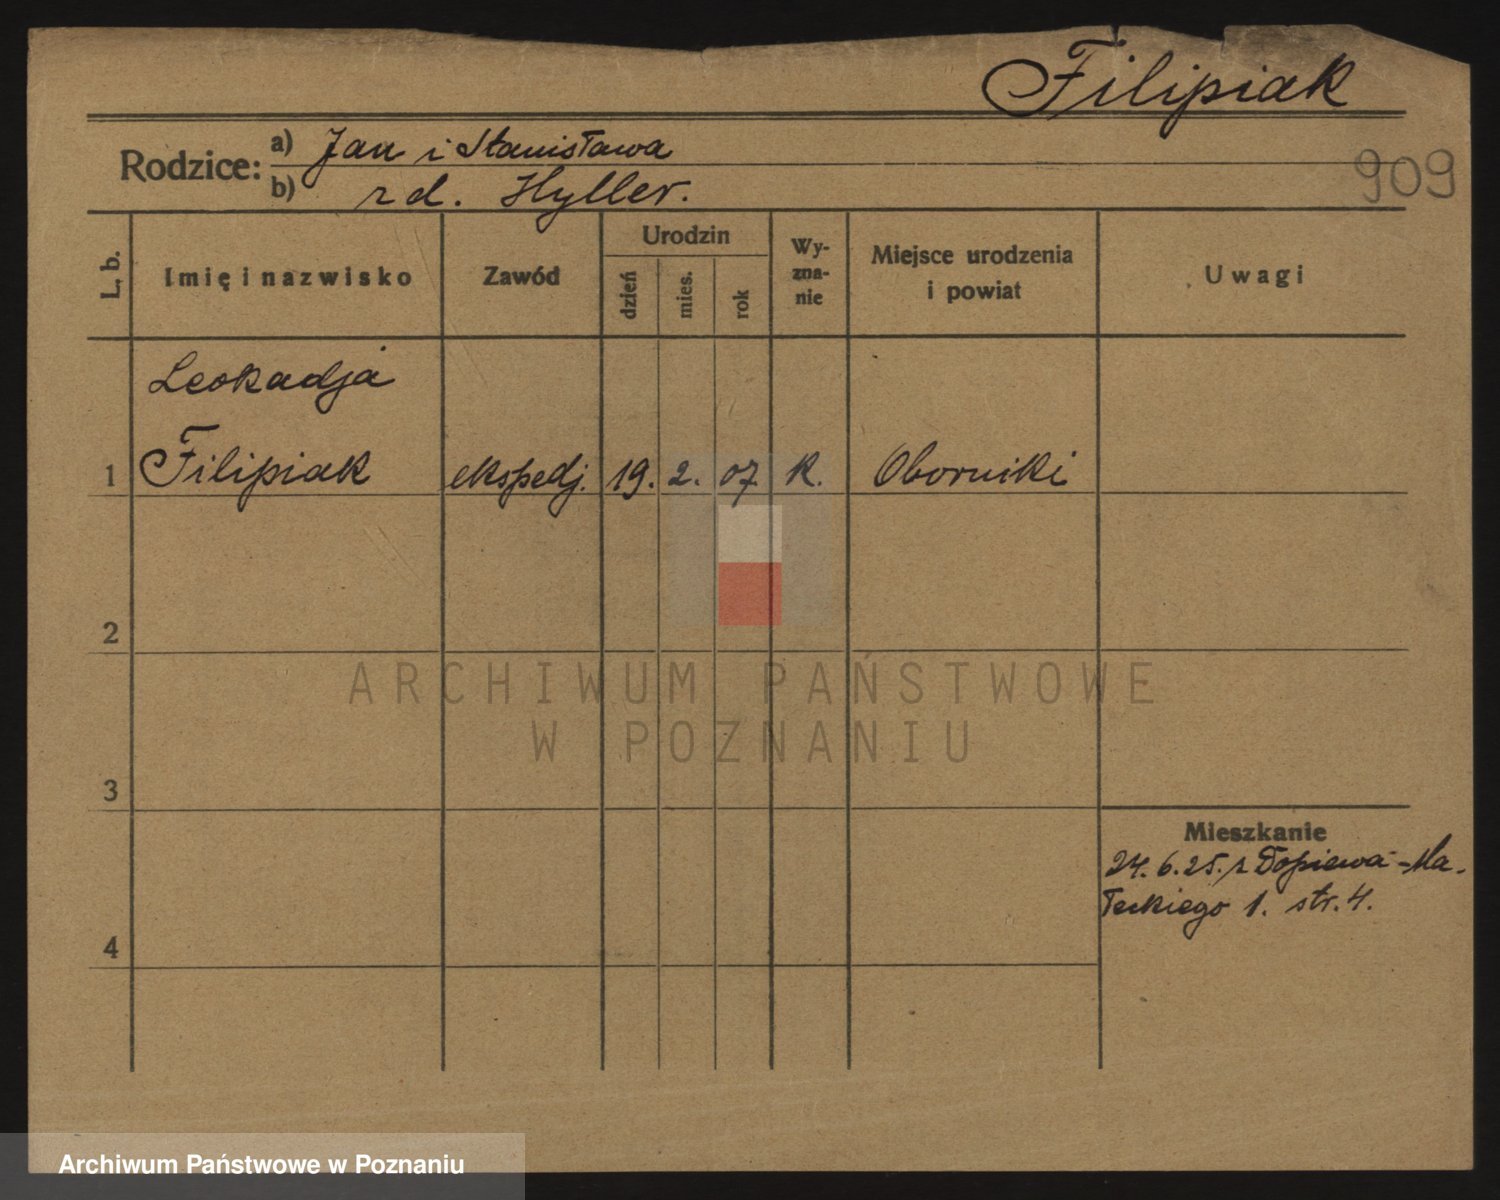 Filipiak
Rodzice: a) Jan i Stanisława
909
b) zd. Hyller.
L. b.
Imię i nazwisko
Zawód
Urodzin
dzień
mies.
rok
Wy-
zna-
nie
Miejsce urodzenia
i powiat
Uwagi
Leokadja
1 Filipiak ekspedj. 19. 2. 07 K. Oborniki
2
ARCHIWUM PAŃSTWOWE
W POZNANIU
3
Mieszkanie
24.6.25. z Dopiewa - Ma-
łeckiego 1. str. 4.
4
Archiwum Państwowe w Poznaniu